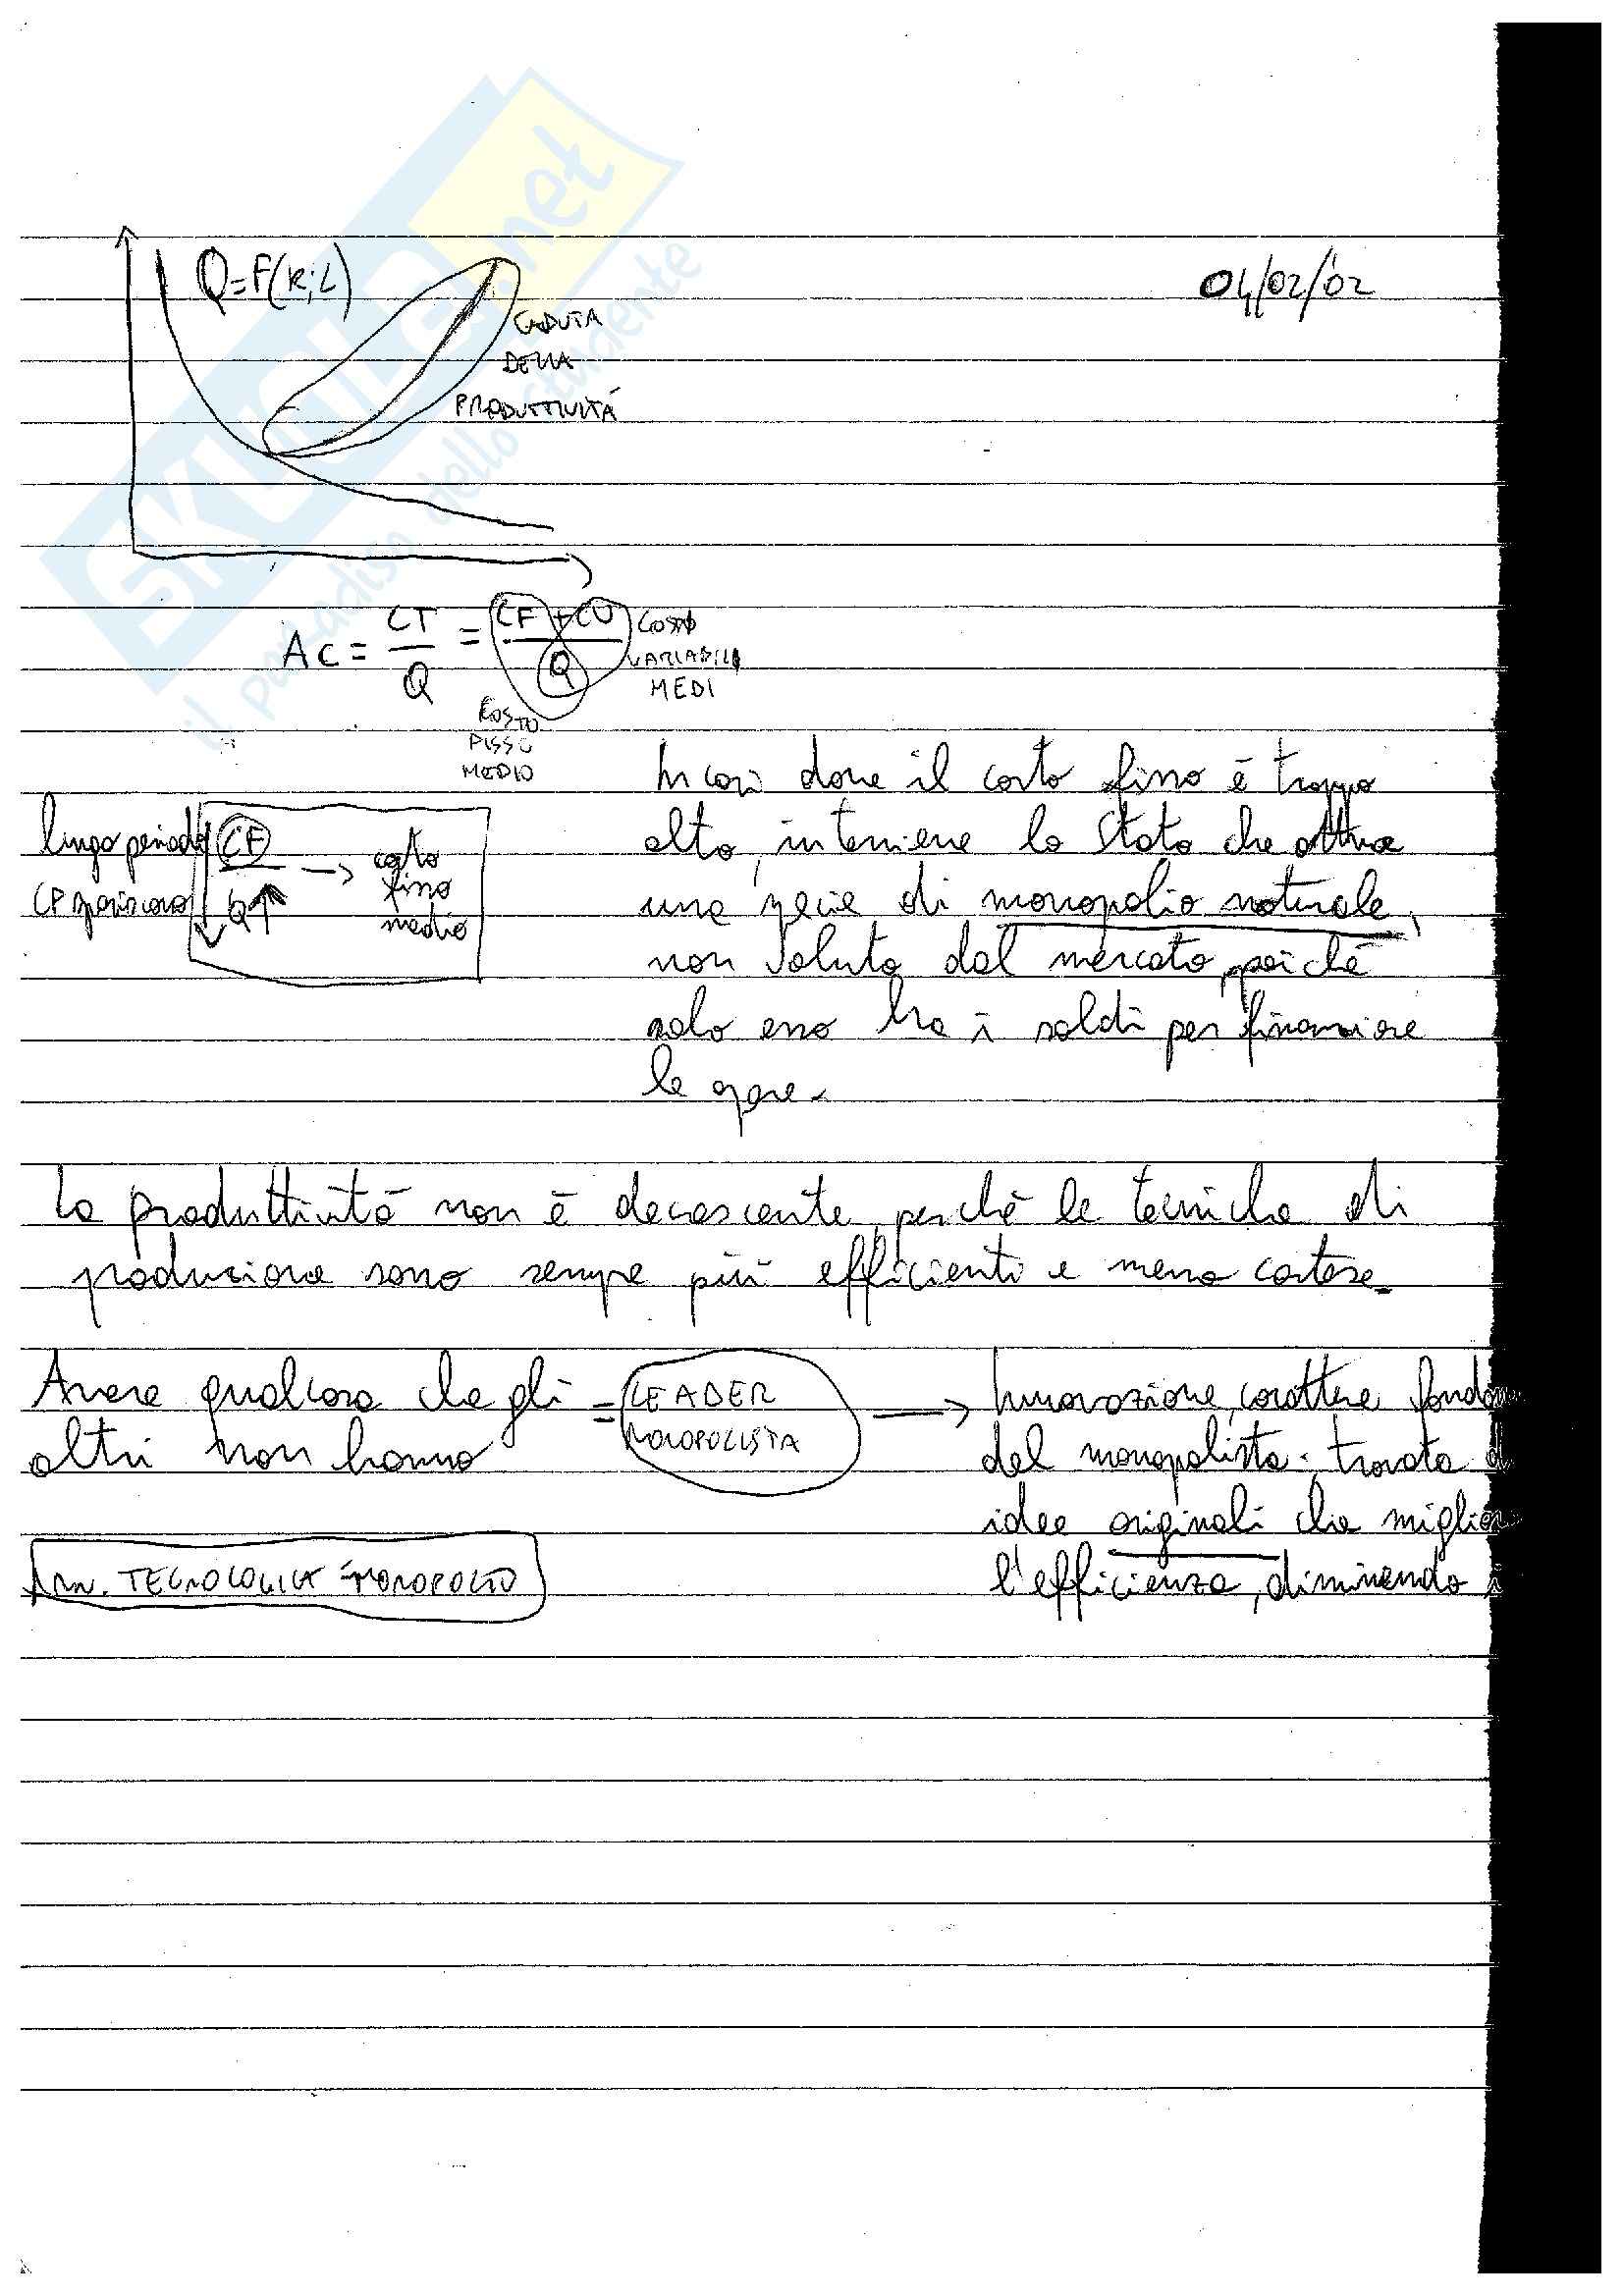 04/02/02
Q=F(K;L)
CADUTA
DELLA
PRODUTTIVITÁ
AC = CT/Q = CF+CV/Q
COSTO
VARIABILI
MEDI
COSTO
FISSO
MEDIO
In casi dove il costo fisso è troppo
alto, interviene lo Stato che attua
una specie di monopolio naturale,
non voluto dal mercato, poichè
solo esso ha i soldi per finanziare
le opere.
lungo periodo
CF spariscono
CF/Q → costo
fisso
medio
La produttività non è decrescente, perchè le tecniche di
produzione sono sempre più efficienti e meno costose.
Avere qualcosa che gli
altri non hanno
= LEADER
MONOPOLISTA
→ Innovazione, carattere
del monopolista: trovata
idee originali che
l'efficienza, diminuendo
INN. TECNOLOGICA = MONOPOLIO
SKUOLA.net
il paradiso dello studente